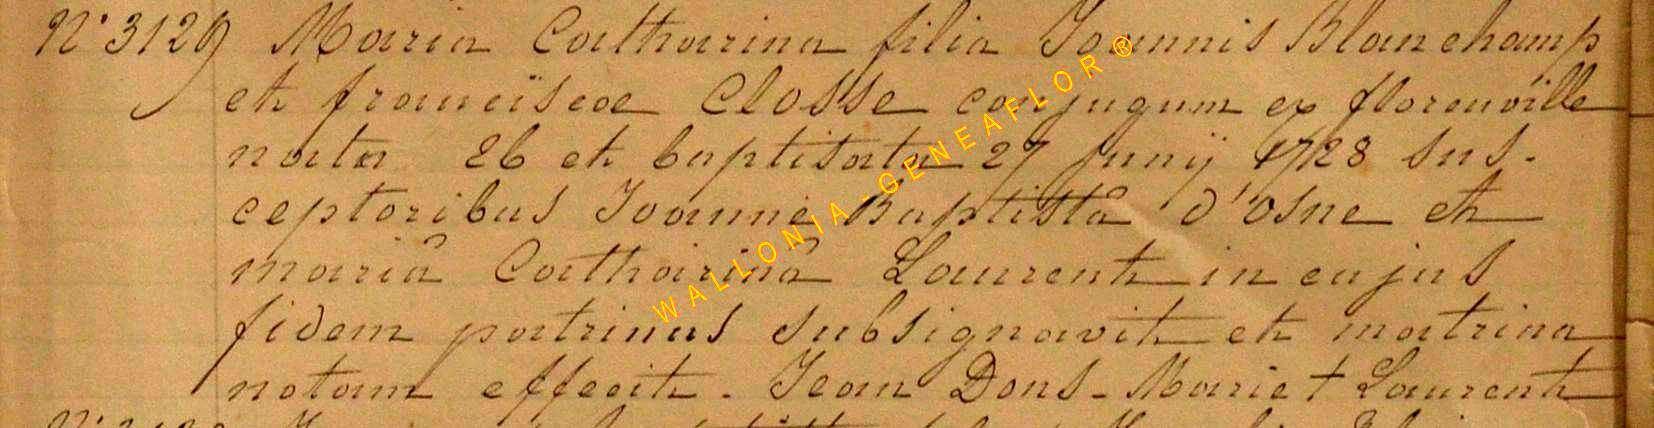 N° 3129 Maria Catharina filia Joannis Blanchamp
et franciscoe Closse conjugum ex florenville
nata 26 et baptisata 27 Junij 1728 sus-
ceptoribus Joanne Baptistâ d'osne et
mariâ Catharinâ Laurent in cujus
fidem patrinus subsignavit et matrina
notam effecit. Jean Dons - Marie + Laurent
WALLONIA-GENEAFLOR®